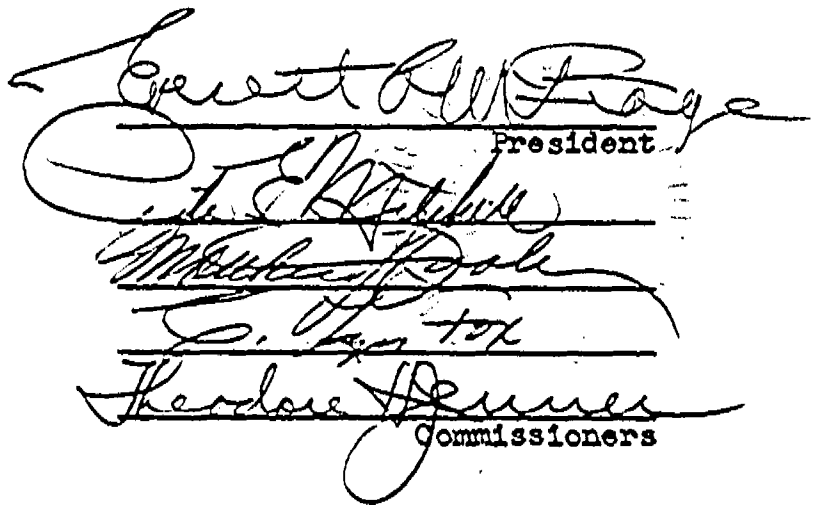 Everett C. McKeage
President
E. Mitchell
Matthew J. Dooley
C. Lyn Fox
Theodore H. Jenner
Commissioners